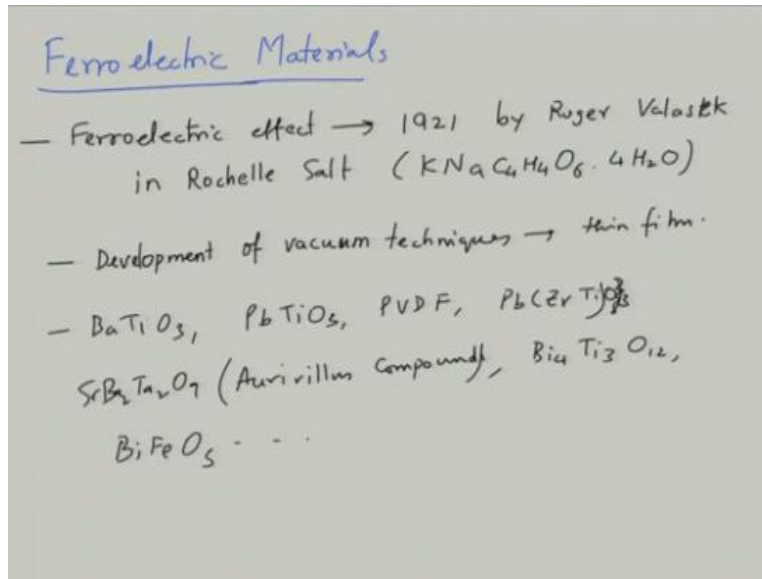 Ferroelectric Materials
— Ferroelectric effect → 1921 by Roger Valasek
in Rochelle Salt (KNaC4H4O6. 4H2O)
— Development of vacuum techniques → thin film.
— BaTiO3, PbTiO3, PVDF, Pb(ZrTi)O3
SrBi2Ta2O9 (Aurivillus Compounds), Bi4Ti3O12,
BiFeO3 - - -